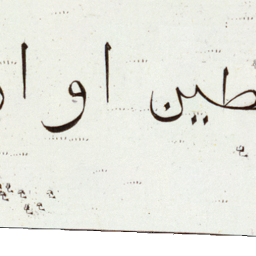 طين اوا